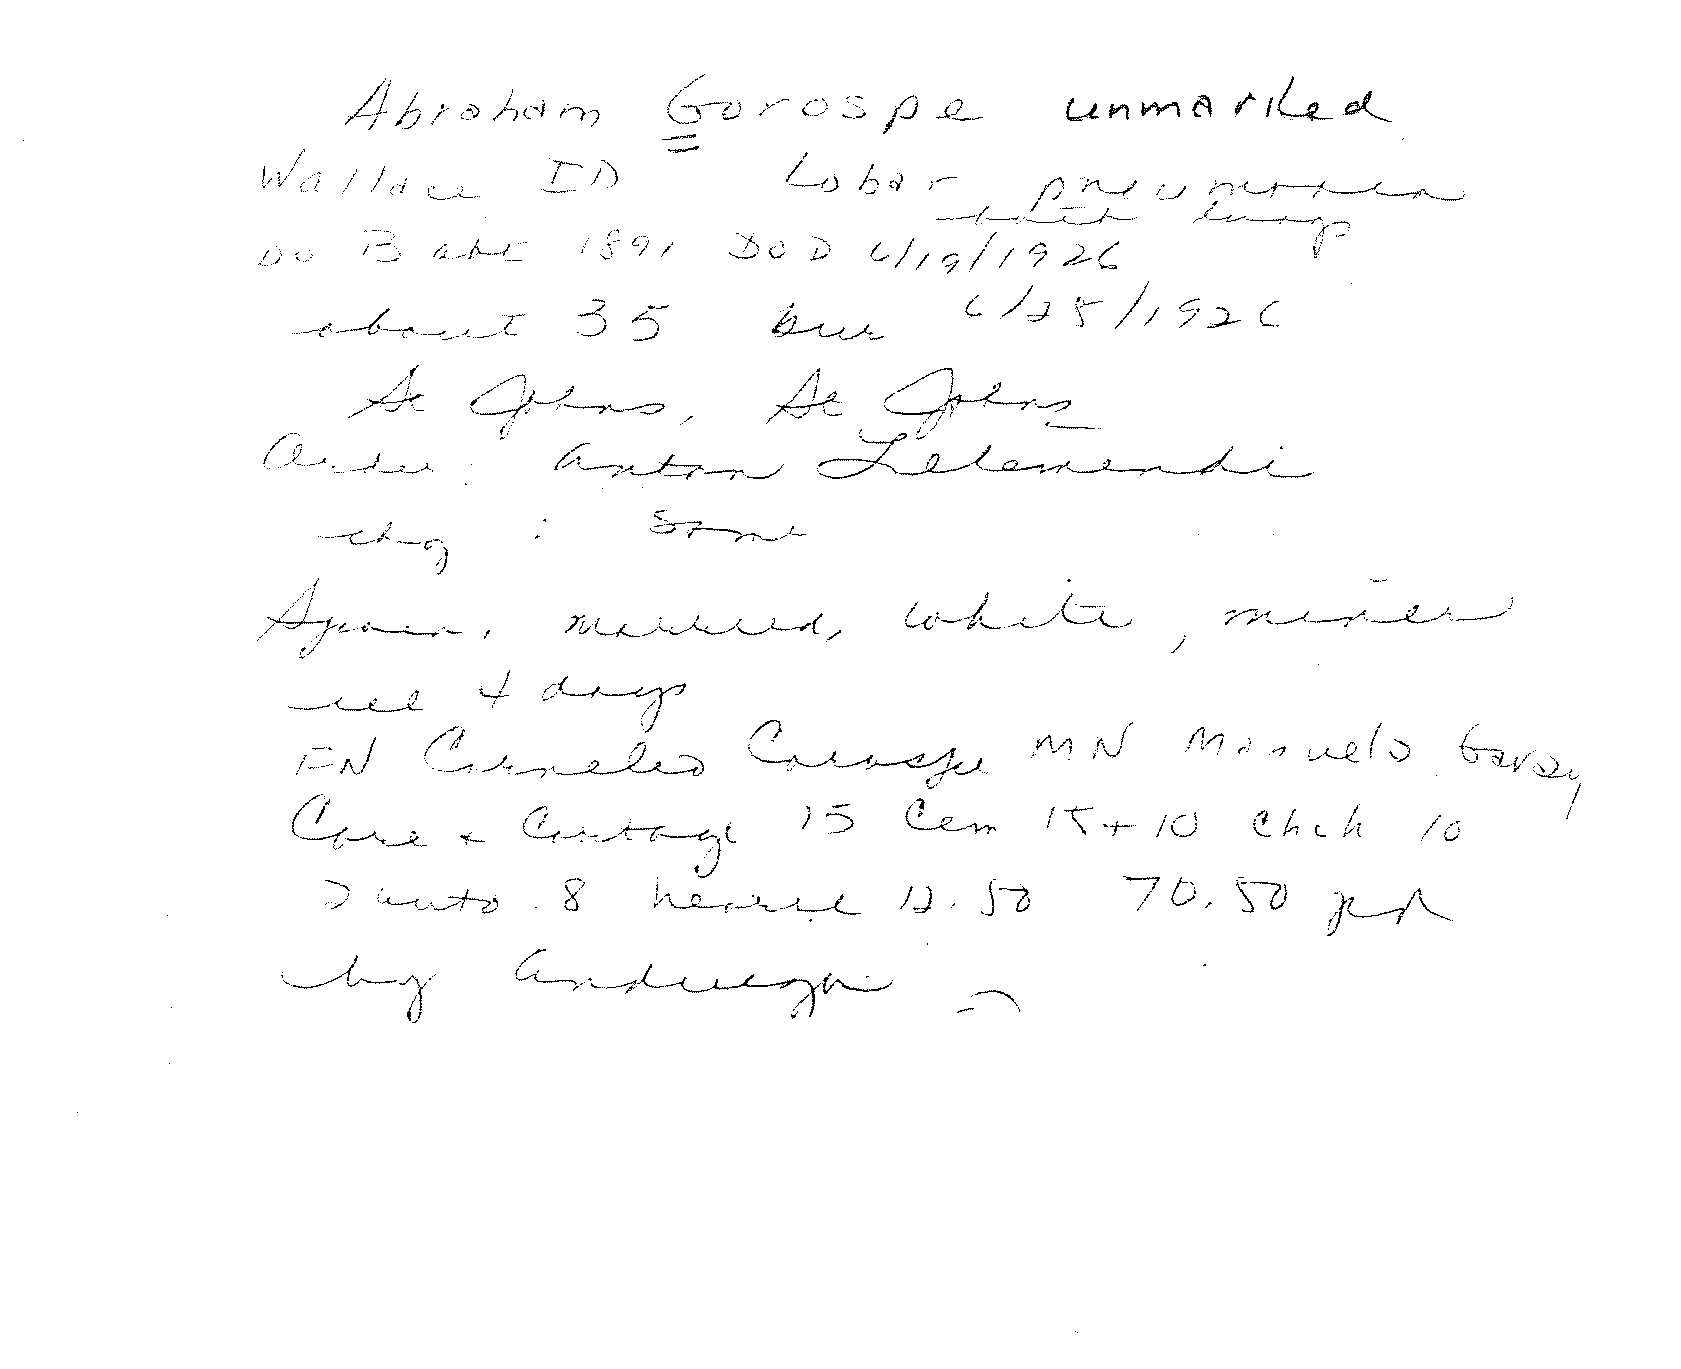 Abraham Gorospe unmarked
Wallace ID Lobar pneumonia
both lungs
DO B abt 1891 DOD 6/19/1926
about 35 bur 6/25/1926
St Johns, St Johns
Order: Anton Letemendi
chg: Same
Spain, married, white, miner
ill 4 days
FN Cornelio Gorospe MN Manuela Garay
Care + Cartage 15 Cem 15+10 Chch 10
2 auto 8 hearse 12.50 70.50 pd
by